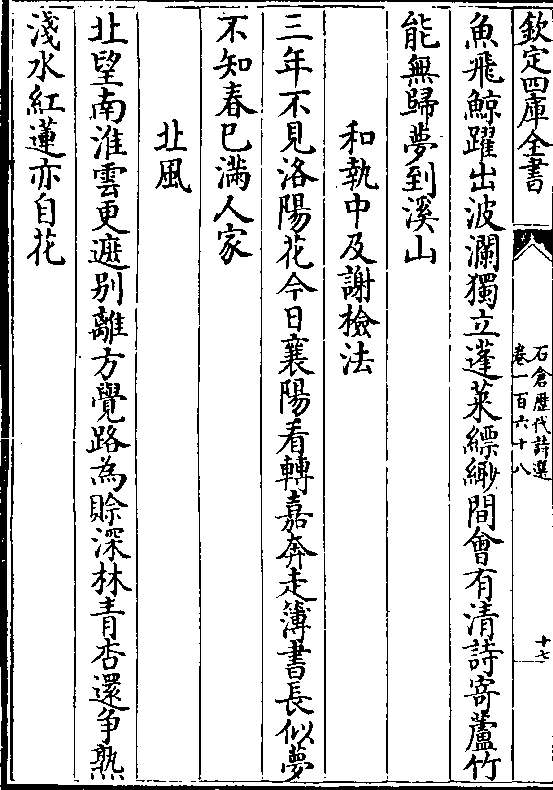 欽定四庫全書
石倉歷代詩選
卷一百六十八
十七
魚飛鯨躍出波瀾獨立蓬萊縹緲間會有清詩寄蘆竹
能無歸夢到溪山
和執中及謝檢法
三年不見洛陽花今日襄陽看轉嘉奔走簿書長似夢
不知春已滿人家
北風
北望南淮雲更遮別離方覺路為賒深林青杏還爭熟
淺水紅蓮亦自花